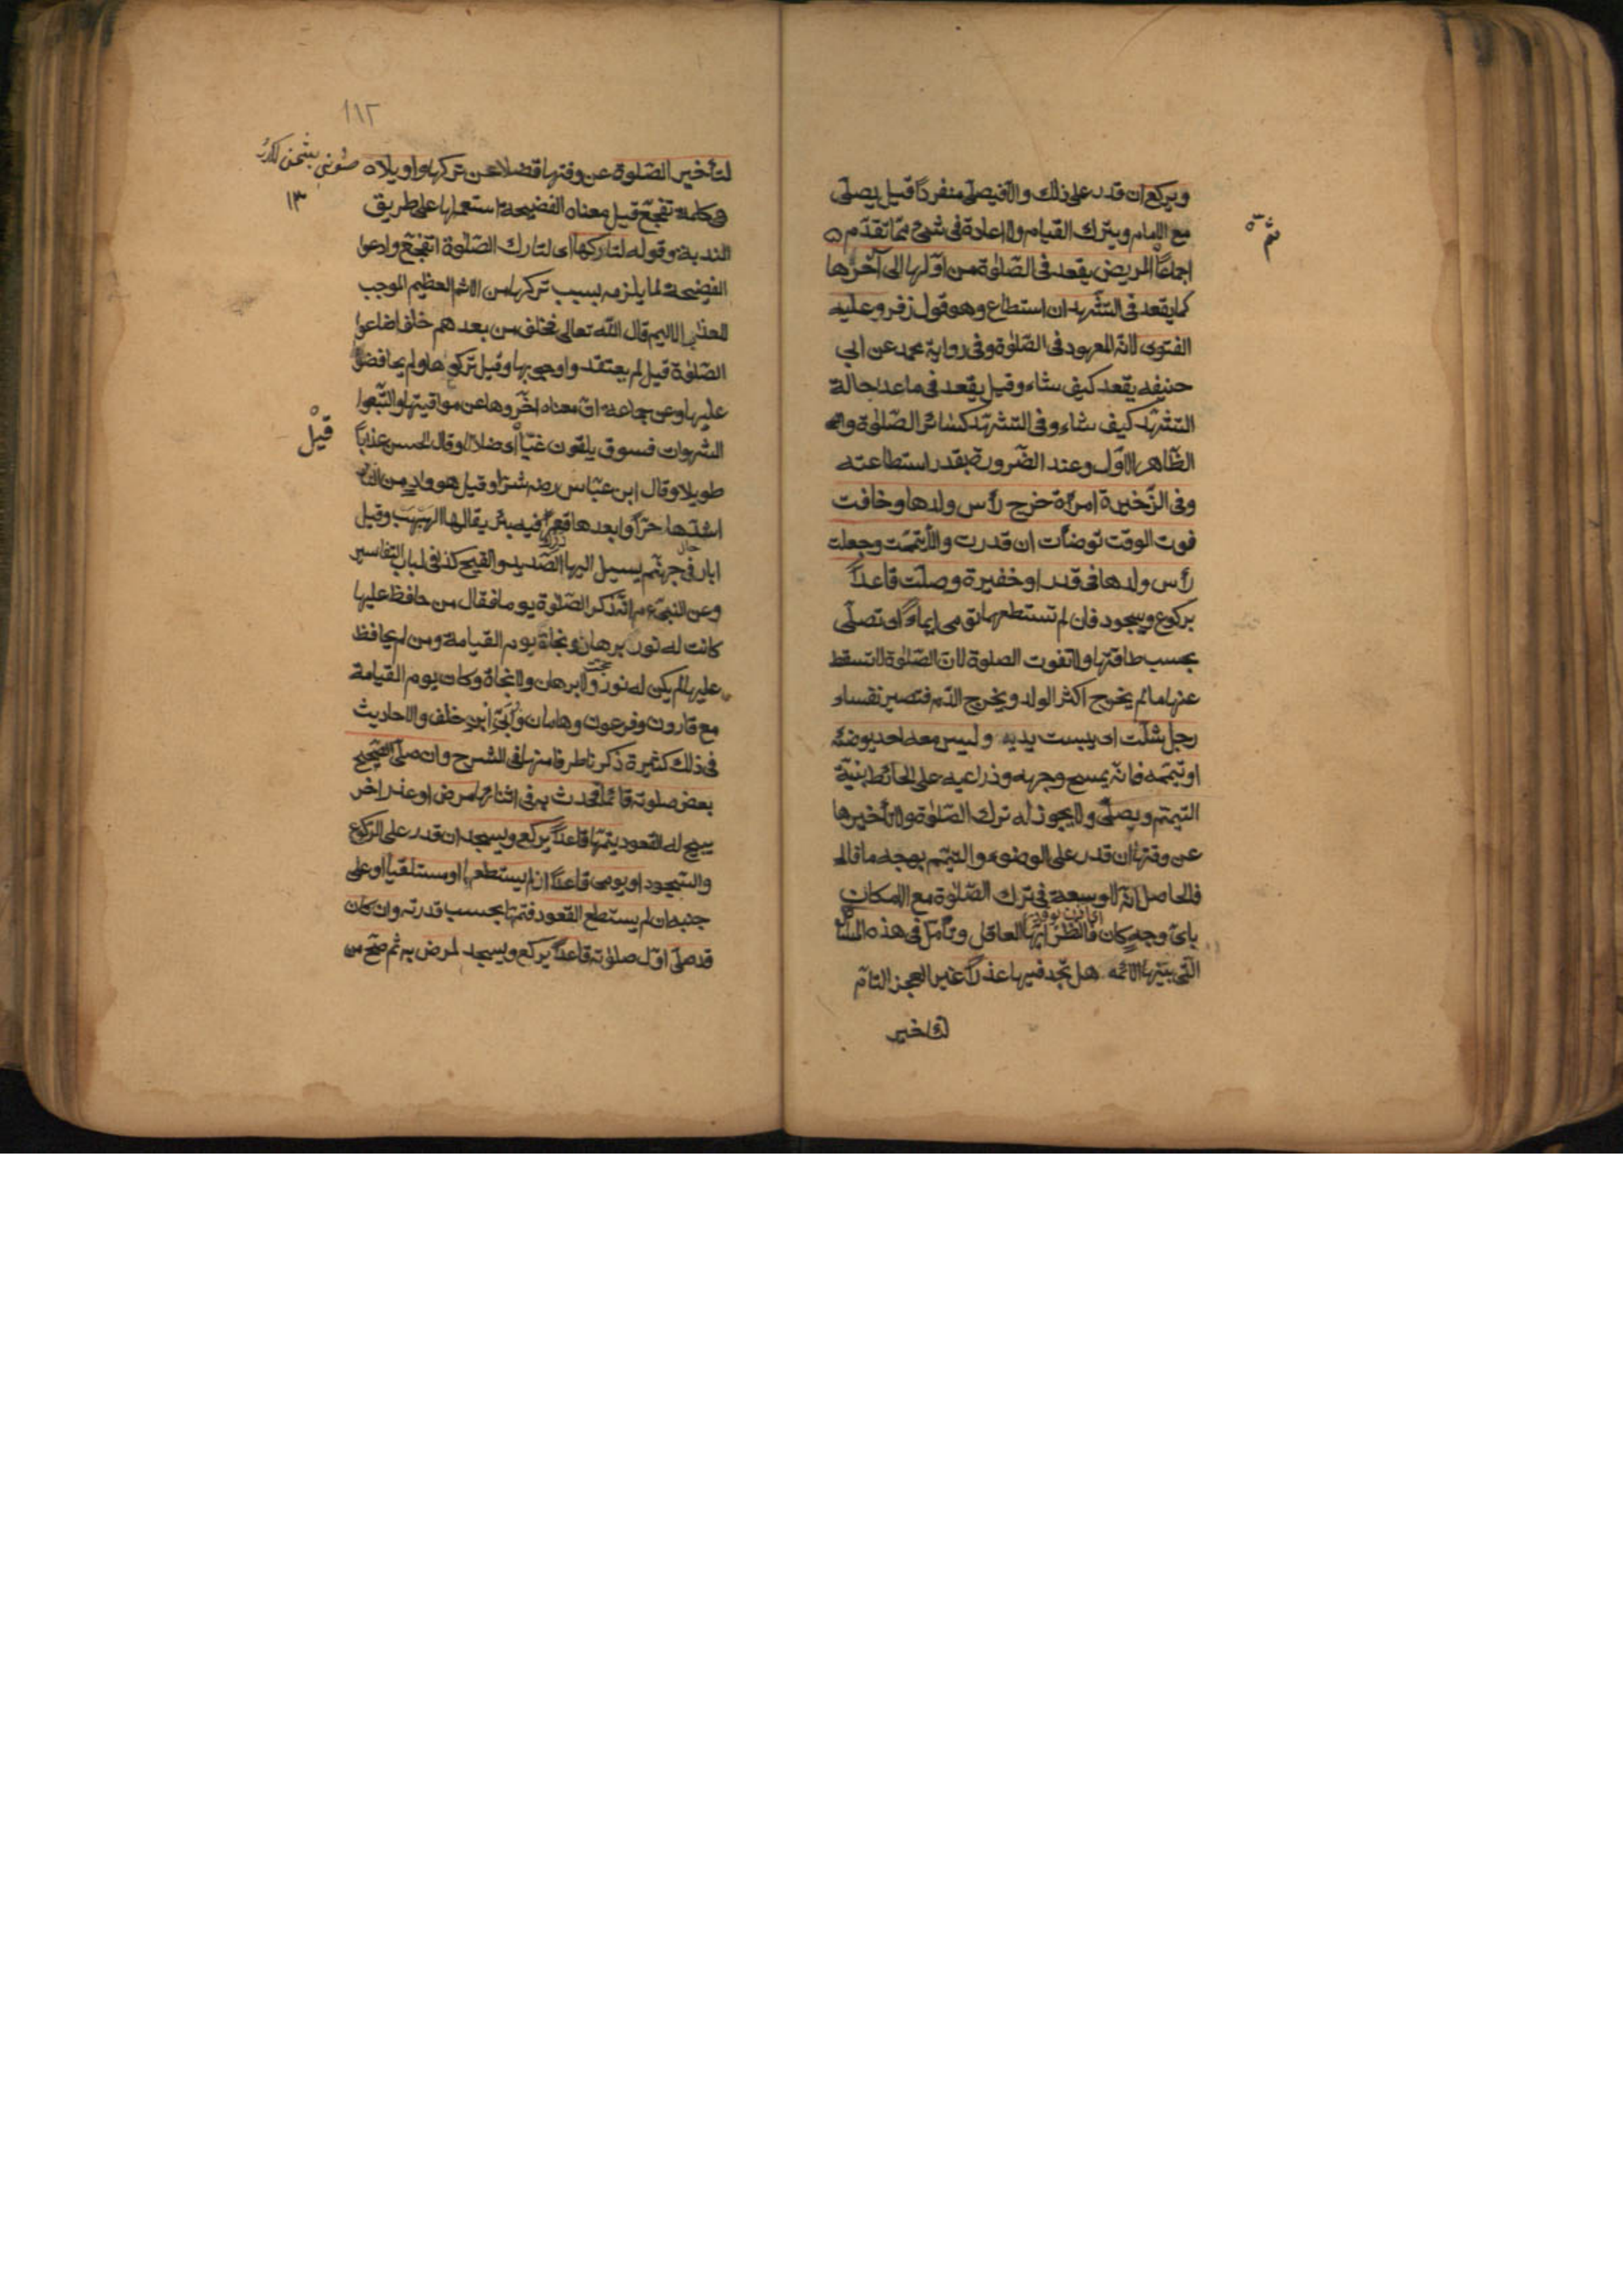 ويركع ان قدر على ذلك والا فيصلّى منفرداً قيل يصلّى
ثمّ
مع الامام ويترك القيام ولا اعادة فى شئ ممّا تقدّم
اجماعاً المريض يقعد فى الصّلوة من اوّلها الى آخرها
كما يقعد فى التشّهد ان استطاع وهو قول زفر وعليه
الفتوى لانّه المعهود فى الصّلوة وفى رواية محمد عن ابي
حنيفه يقعد كيف شاء وقيل يقعد فى ماعدا حالة
التشّهد كيف شاء وفى التشهّد كسائر الصّلوة
الظّاهر الاوّل وعند الضّرورة بقدر استطاعته
وفى الذّخيرة امرأة خرج رأس ولدها وخافت
فوت الوقت توضأت ان قدرت والّا تيمّمت وجعلت
رأس ولدها فى قدر او حفيرة وصلّت قاعداً
بركوع وسجود فان لم تستطعهما تومى ايماءً اى تصلّى
بحسب طاقتها ولا تفوت الصلوة لانّ الصّلوة لا تسقط
عنها ما لم يخرج اكثر الولد ويخرج الدّم فتصير نفساء
رجل شلّت اى يبست يديه وليس معه احد يوضئه
او تيمّمه فانّه يمسح وجهه وذراعيه على الحائط بنيّة
التيمّم ويصلّى ولا يجوز له ترك الصّلوة ولا تأخيرها
عن وقتها ان قدر على الوضوء والتيّمم بوجه ما قال
فالحاصل انّه لا وسعة فى ترك الصّلوة مع الامكان
باىّ وجه كان فانظر ايّها العاقل وتأمّل فى هذه المسائل
الّتى بيّنها الائمّه هل تجد فيها عذراً غير العجز التامّ
لتأخير
١١٢
لتأخير الصّلوة عن وقتها فضلا عن تركها واويلاه
١٣
وهى كلمة تفجّع قيل معناه الفضيحة استعملها على طريق
الندبة وقوله لتاركها اى لتارك الصّلوة اتفجّع وادعوا
الفضيحة لما يلزمه بسبب تركها من الاثم العظيم الموجب
للعذاب الاليم قال الله تعالى فخلف من بعدهم خلف اضاعوا
الصّلوة قيل لم يعتقدوا وجوبها وقيل تركوها ولم يحافضوا
عليها وعن جماعة انّ معناه اخّروها عن مواقيتها واتّبعوا
قيل
الشهوات فسوف يلقون غيّاً اى ضلالا وقال الحسن عذاباً
طويلا وقال ابن عبّاس رضه شرّا وقيل هو واد من النار
اشدّها حرّاً وابعدها قعراً فيه بئر يقال لها الهبهب وقيل
ابار فى جهنّم يسيل اليها الصّديد والقيح كذا فى لباب التّفاسير
وعن النبىّ عم انّه ذكر الصّلوة يوما فقال من حافظ عليها
كانت له نور برهان ونجاة يوم القيامة ومن لم يحافظ
عليها لم يكن له نور ولا برهان ولا نجاة وكان يوم القيامة
مع قارون وفرعون وهامان وأبيّ ابن خلف والاحاديث
فى ذلك كثيرة ذكرنا طرفا منها فى الشرح وان صلّى الصّحيح
بعض صلوته قائماً فحدث به فى اثنائها مرض او عذر اخر
يبيح له القعود يتمّها قاعداً يركع ويسجد ان قدر على الرّكوع
والسّجود او يومى قاعداً ان لم يستطعهما او مستلقيا او على
جنبه ان لم يستطع القعود فتمّها بحسب قدرته وان كان
قد صلّى اوّل صلوته قاعداً يركع ويسجد لمرض به ثمّ صحّ من